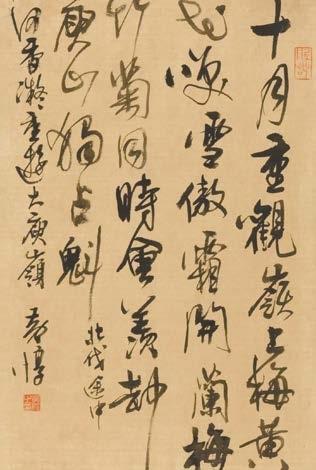 十月重觀嶺上梅黃
花雪傲霜開蘭梅
竹菊同時會羨
庾山獨占魁 北伐途中
何香凝重遊大庾嶺